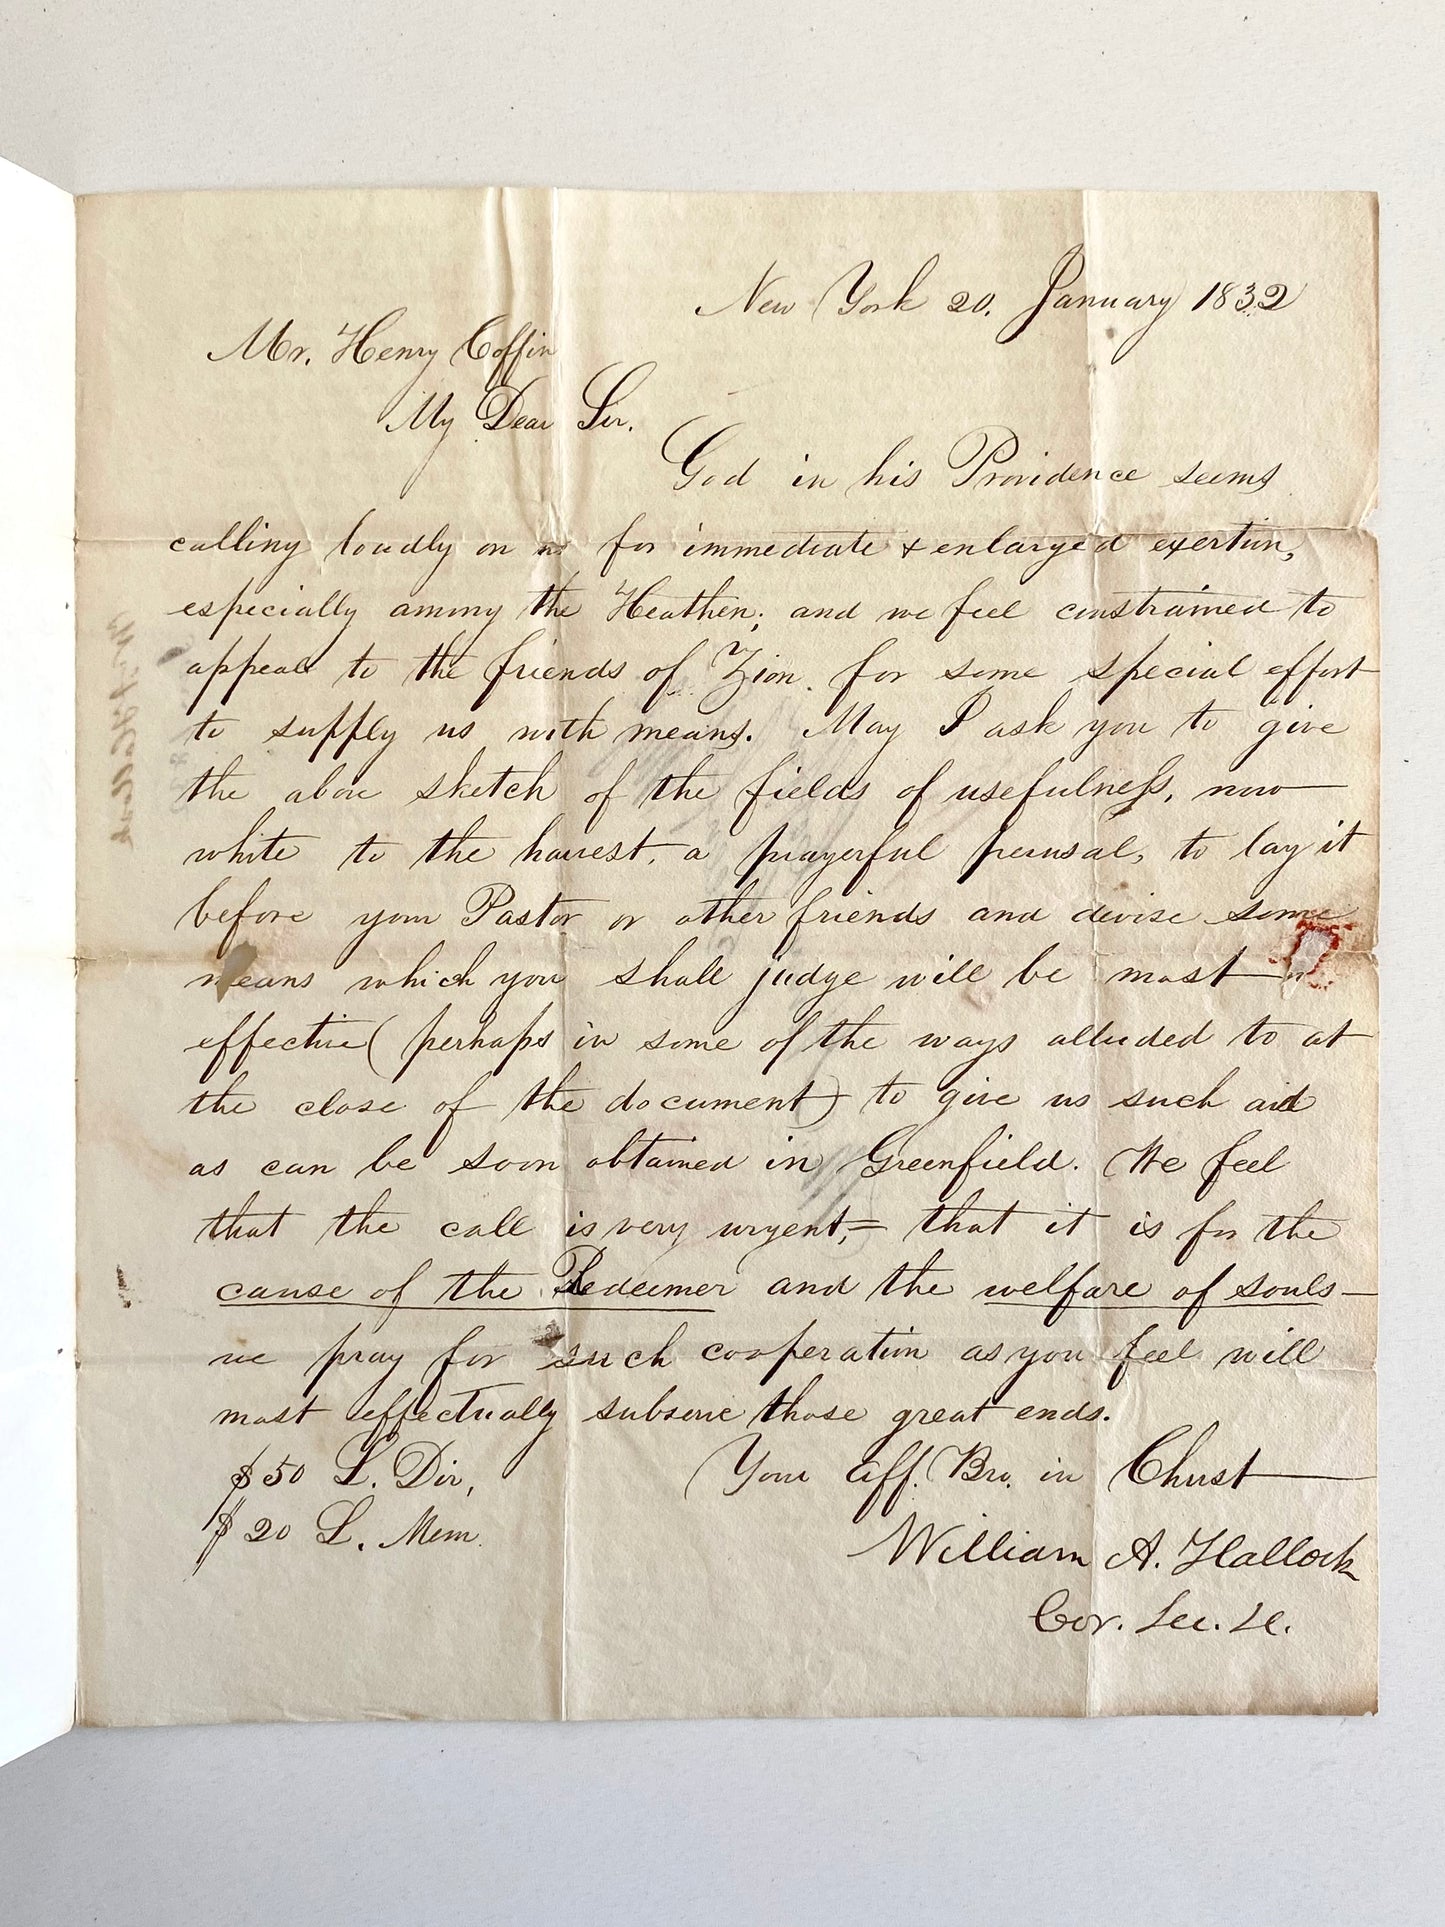 New York 20. January 1832
Mr. Henry Coffin
My Dear Sir.
God in his Providence seems
calling loudly on us for immediate & enlarged exertion,
especially among the Heathen; and we feel constrained to
appeal to the friends of Zion for some special effort
to supply us with means. May I ask you to give
the above sketch of the fields of usefulness, now
white to the harvest, a prayerful perusal, to lay it
before your Pastor or other friends and devise some
means which you shall judge will be most
effective (perhaps in some of the ways alluded to at
the close of the document) to give us such aid
as can be soon obtained in Greenfield. We feel
that the call is very urgent, = that it is for the
cause of the Redeemer and the welfare of souls —
we pray for such cooperation as you feel will
most effectually subserve those great ends.
$50 L. Dir,
$20 L. Mem.
Your aff. Bro. in Christ
William A. Hallock
Cor. Sec. &c.